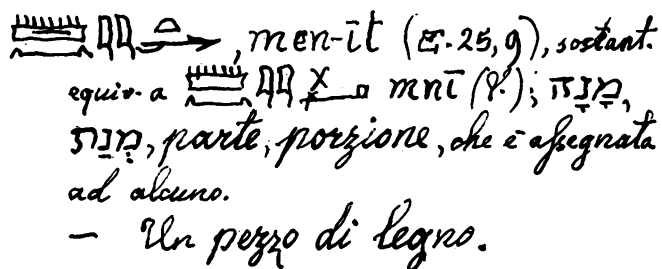 , men-īt (E. 25, 9), sostant.
equiv. a mnī (V.); מָנָה,
מְנַת, parte, porzione, che è assegnata
ad alcuno.
— Un pezzo di legno.